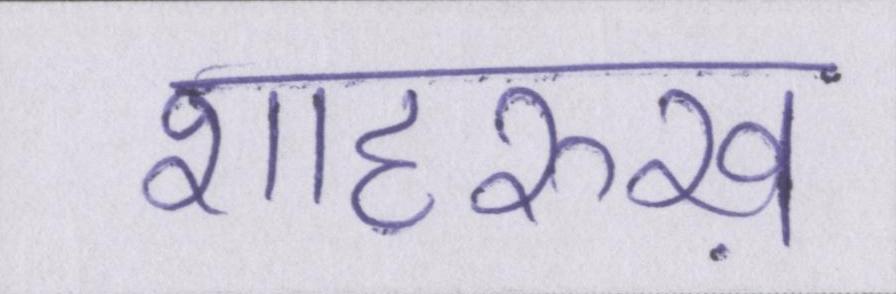 शाहरुख़